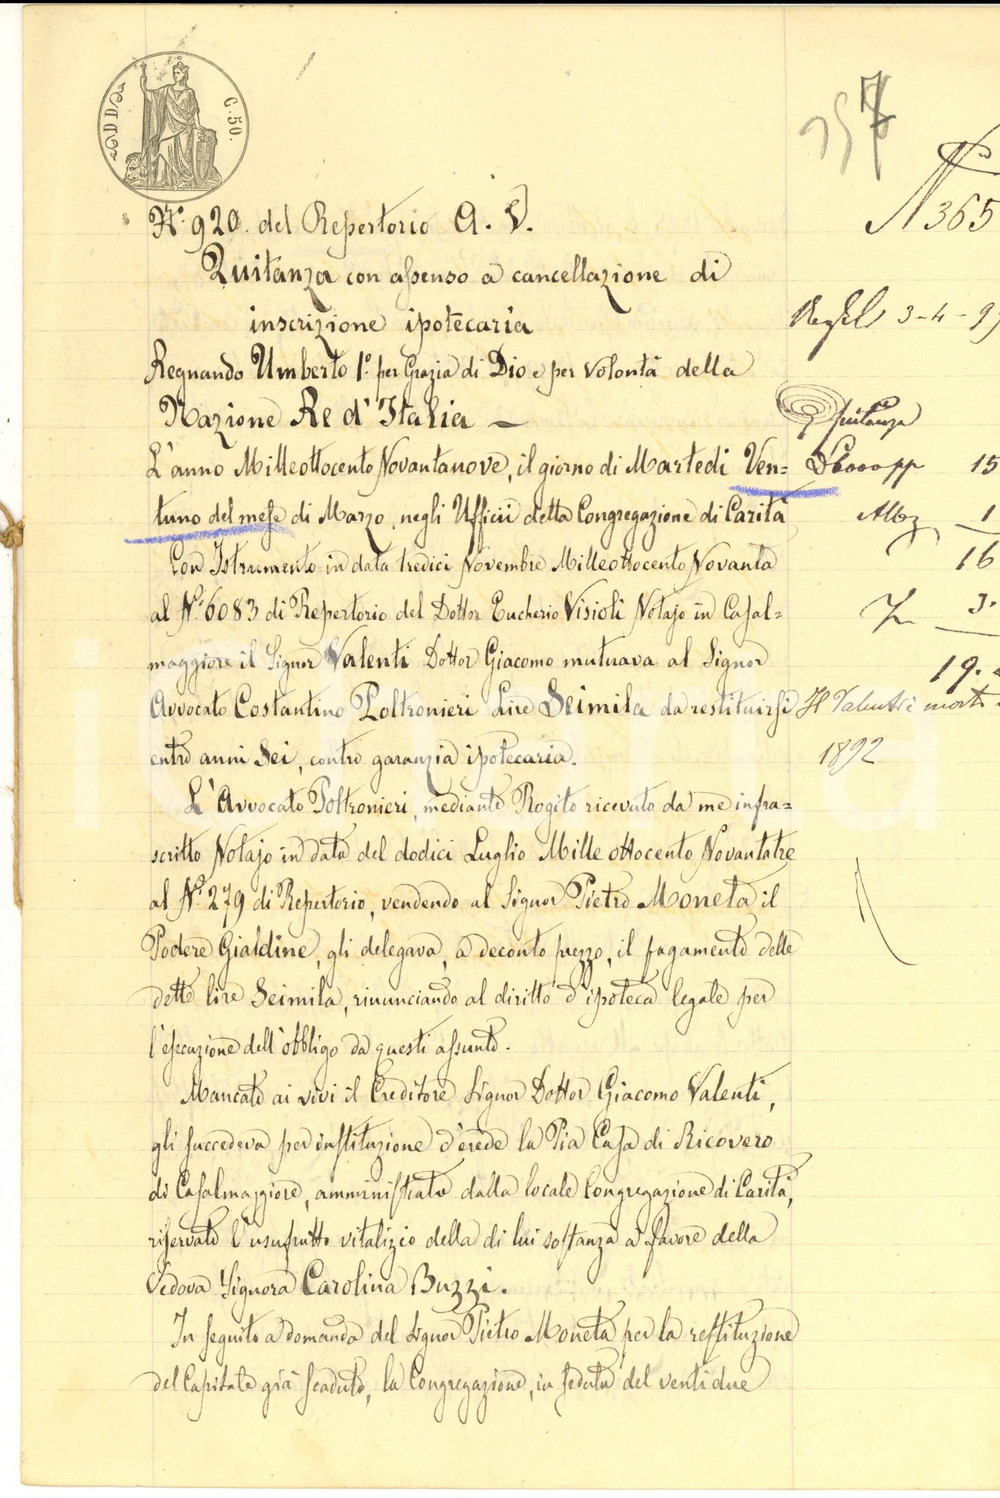 C. 50.
N.º 920. del Repertorio A. V.
Quitanza con assenso a cancellazione di
inscrizione ipotecaria
Regnando Umberto 1º per Grazia di Dio e per volontà della
Nazione Re d'Italia —
L'anno Milleottocento Novantanove, il giorno di Martedì Ven=
tuno del mese di Marzo, negli Ufficii della Congregazione di Carità
Con Istrumento in data tredici Novembre Milleottocento Novanta
al Nº 6083 di Repertorio del Dottor Eucherio Visioli Notajo in Casal=
maggiore il Signor Valenti Dottor Giacomo mutuava al Signor
Avvocato Costantino Poltronieri Lire Seimila da restituirsi
entro anni Sei, contro garanzia ipotecaria.
L'Avvocato Poltronieri, mediante Rogito ricevuto da me infra=
scritto Notajo in data del dodici Luglio Mille ottocento Novantatre
al Nº 279 di Repertorio, vendendo al Signor Pietro Moneta il
Podere Gialdine, gli delegava, a deconto prezzo, il pagamento delle
dette lire Seimila, rinunciando al diritto d'ipoteca legale per
l'esecuzione dell'obbligo da questi assunto.
Mancato ai vivi il Creditore Signor Dottor Giacomo Valenti,
gli succedeva per instituzione d'erede la Pia Casa di Ricovero
di Casalmaggiore, amministrata dalla locale Congregazione di Carità,
riservato l'usufrutto vitalizio della di lui sostanza a favore della
Vedova Signora Carolina Buzzi.
In seguito a domanda del Signor Pietro Moneta per la restituzione
del Capitale già scaduto, la Congregazione, in seduta del ventidue
357
N 365
3-4-99
quitanza
15
1
16
3.
19.
Il Valenti è morto
1892